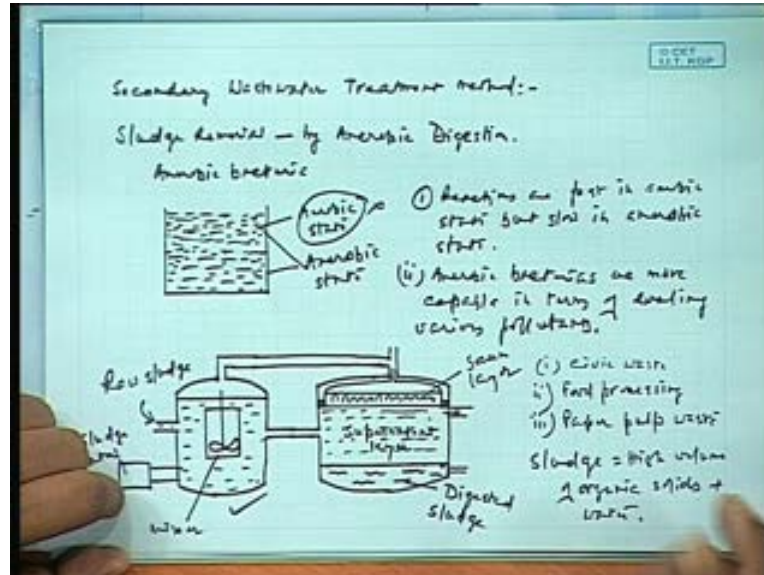 © CET
I.I.T. KGP
Secondary Wastewater Treatment method:-
Sludge Removal — by Anerobic Digestion.
Anerobic bacteria
Aerobic
state
Anerobic
state
(i) Reactions are fast in aerobic
state but slow in anerobic
state.
(ii) Anerobic bacterias are more
capable in terms of
various pollutants.
Raw sludge
Sludge
mixer
Scum
layer
Supernatant
layer
Digested
sludge
(i) Civic waste
ii) Food processing
iii) Paper pulp waste
Sludge = High volume
of organic solids +
water.